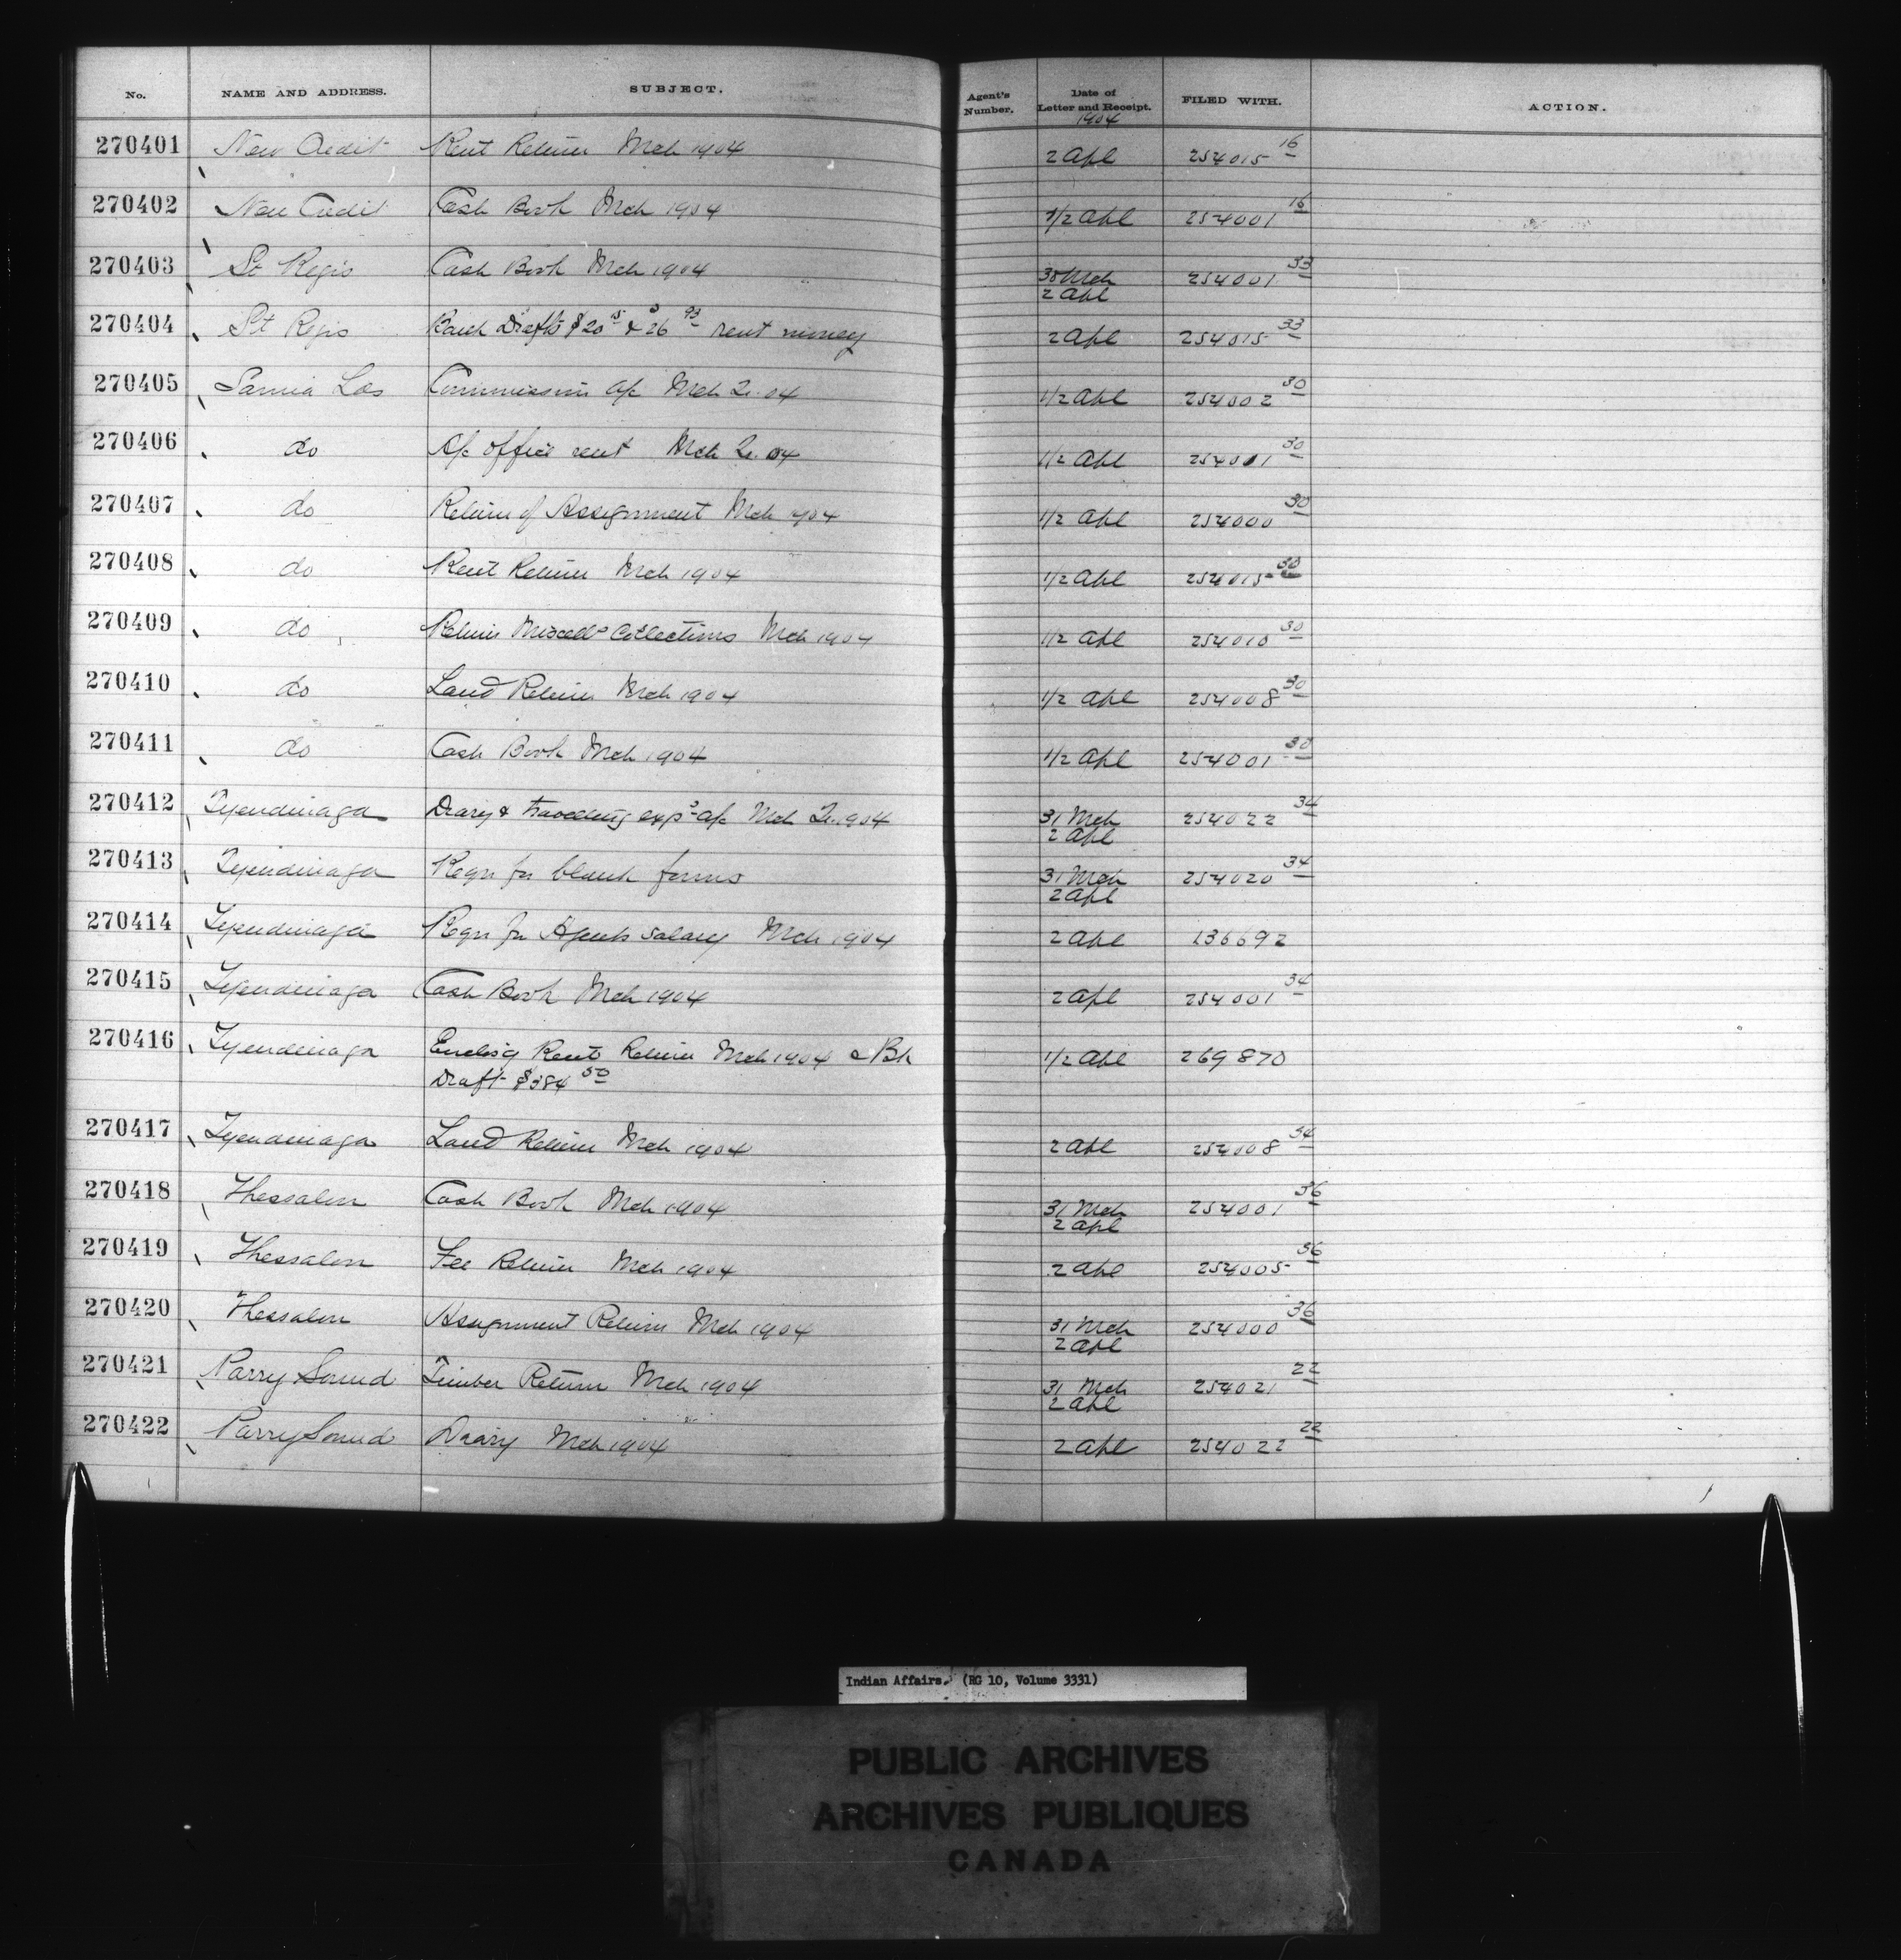 No. NAME AND ADDRESS. SUBJECT. Agent's Number. Date of Letter and Receipt. FILED WITH. ACTION.
1904
270401 New Credit Rent Return Mch 1904 2 Apl 254015 16
270402 New Credit Cash Book Mch 1904 1/2 Apl 254001 16
270403 St Regis Cash Book Mch 1904 30 Mch 254001 33
2 Apl
270404 St Regis Bank Drafts $20 15 & $26 93 rent money 2 Apl 254015 33
270405 Sarnia Commission a/c Mch Qr. 04 1/2 Apl 254002 30
270406 do A/c office rent Mch Qr. 04 1/2 Apl 254001 30
270407 do Return of Assignment Mch 1904 1/2 Apl 254000 30
270408 do Rent Return Mch 1904 1/2 Apl 254015 30
270409 do Return Miscells Collections Mch 1904 1/2 Apl 254010 30
270410 do Land Return Mch 1904 1/2 Apl 254008 30
270411 do Cash Book Mch 1904 1/2 Apl 254001 30
270412 Tyendinaga Diary & travelling exps a/c Mch Qr. 904 31 Mch 254022 34
2 Apl
270413 Tyendinaga Reqn for blank forms 31 Mch 254020 34
2 Apl
270414 Tyendinaga Reqn for Agents salary Mch 1904 2 Apl 136692
270415 Tyendinaga Cash Book Mch 1904 2 Apl 254001 34
270416 Tyendinaga Enclos'g Rent Return Mch 1904 & Bk 1/2 Apl 269870
Draft $384 50
270417 Tyendinaga Land Return Mch 1904 2 Apl 254008 34
270418 Thessalon Cash Book Mch 1904 31 Mch 254001 36
2 Apl
270419 Thessalon Fee Return Mch 1904 2 Apl 254005 36
270420 Thessalon Assignment Return Mch 1904 31 Mch 254000 36
2 Apl
270421 Parry Sound Timber Return Mch 1904 31 Mch 254021 22
2 Apl
270422 Parry Sound Diary Mch 1904 2 Apl 254022 22
Indian Affairs. (RG 10, Volume 3331)
PUBLIC ARCHIVES
ARCHIVES PUBLIQUES
CANADA